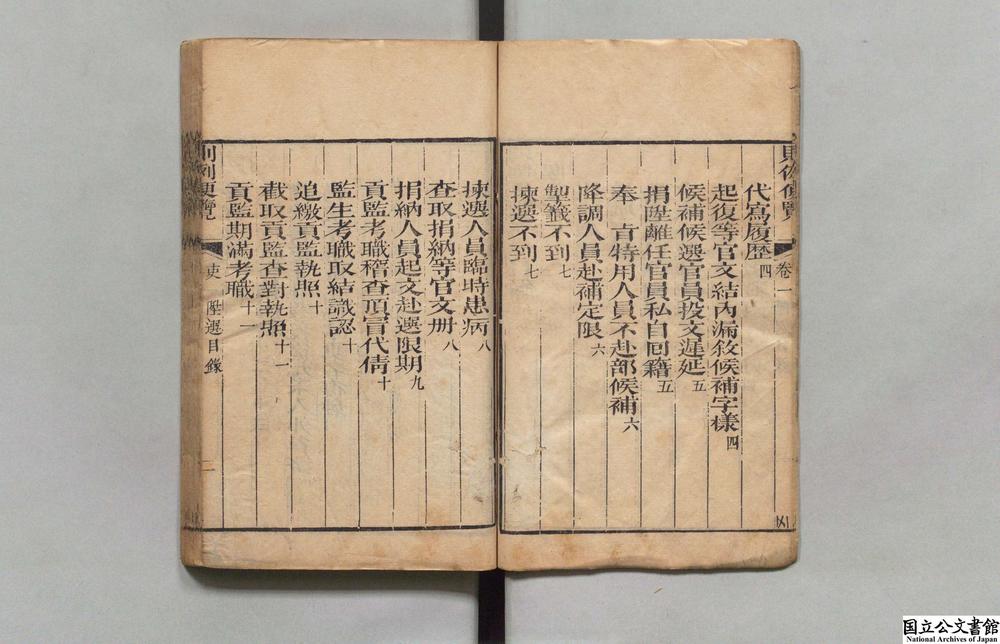 則例便覽
卷一
代寫履歷四
起復等官文結內漏敘候補字樣四
候補候選官員投文遲延五
捐陞離任官員私自回籍五
奉 旨特用人員不赴部候補六
降調人員赴補定限六
掣籤不到七
揀選不到七
揀選人員臨時患病八
查取捐納等官文册八
捐納人員起文赴選限期九
貢監考職稽查頂冒代倩十
監生考職取結識認十
追繳貢監執照十
截取貢監查對執照十一
貢監期滿考職十一
則例便覽
吏
陞選目錄
二
国立公文書館
National Archives of Japan